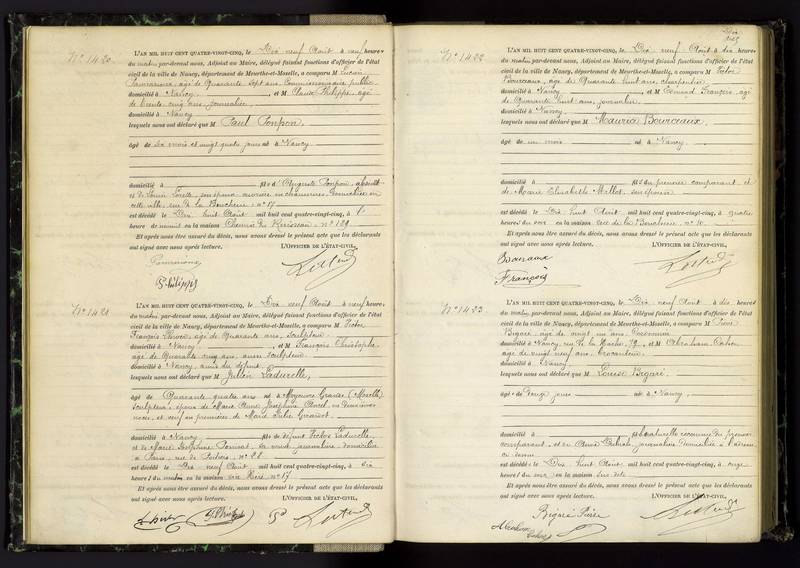 N° 1420.
L'AN MIL HUIT CENT QUATRE-VINGT-CINQ, le Dix neuf Août à neuf heures
du matin par-devant nous, Adjoint au Maire, délégué faisant fonctions d'officier de l'état
civil de la ville de Nancy, département de Meurthe-et-Moselle, a comparu M Lucien
âgé de Quarante Sept ans, Commissionnaire public
domicilié à Nancy, et M Claude Philippe, âgé
de trente cinq ans, journalier,
domicilié à Nancy
lesquels nous ont déclaré que M Paul Ponpon,
âgé de Six mois et vingt quatre jours né à Nancy
domicilié à fils d'Auguste Ponpon, absent
et de Louise son épouse, ouvrière en chaussures, domiciliée en
cette ville, rue de la Boucherie n° 17
est décédé le Dix huit Août mil huit cent quatre-vingt-cinq, à
heure de en la maison Chemin du n° 129
Et après nous être assuré du décès, nous avons dressé le présent acte que les déclarants
ont signé avec nous après lecture. L'OFFICIER DE L'ÉTAT-CIVIL,
Philippe
N° 1421.
L'AN MIL HUIT CENT QUATRE-VINGT-CINQ, le Dix neuf Août à neuf heures
du matin par-devant nous, Adjoint au Maire, délégué faisant fonctions d'officier de l'état
civil de la ville de Nancy, département de Meurthe-et-Moselle, a comparu M Victor
François âgé de Quarante ans, Sculpteur
domicilié à Nancy, et M François Christophe,
âgé de Quarante cinq ans, aussi sculpteur
domicilié à Nancy, amis du défunt
lesquels nous ont déclaré que M Julien Ladurelle,
âgé de Quarante quatre ans né à Moyeuvre Grande (Moselle)
Sculpteur, époux de Marie Anne Joséphine en deuxièmes
noces, et veuf en premières de Marie Julie
domicilié à Nancy, fils de défunt Victor Ladurelle,
et de Marie Joséphine sa veuve, journalière, domiciliée
à Paris, rue de n° 28
est décédé le Dix neuf Août, mil huit cent quatre-vingt-cinq, à six
heures du matin en la maison rue n° 17
Et après nous être assuré du décès, nous avons dressé le présent acte que les déclarants
ont signé avec nous après lecture. L'OFFICIER DE L'ÉTAT-CIVIL,
N° 1422.
L'AN MIL HUIT CENT QUATRE-VINGT-CINQ, le Dix neuf Août à dix heures
du matin par-devant nous, Adjoint au Maire, délégué faisant fonctions d'officier de l'état
civil de la ville de Nancy, département de Meurthe-et-Moselle, a comparu M Victor
Bourciaux, âgé de Quarante huit ans, charpentier
domicilié à Nancy, et M Edmond François, âgé
de Quarante huit ans, journalier
domicilié à Nancy
lesquels nous ont déclaré que M Maurice Bourciaux,
âgé de un mois né à Nancy
domicilié à fils du premier comparant et
de Marie Elisabeth son épouse
est décédé le Dix huit Août mil huit cent quatre-vingt-cinq, à quatre
heures du soir en la maison rue de la n°
Et après nous être assuré du décès, nous avons dressé le présent acte que les déclarants
ont signé avec nous après lecture. L'OFFICIER DE L'ÉTAT-CIVIL,
François
N° 1423.
L'AN MIL HUIT CENT QUATRE-VINGT-CINQ, le Dix neuf Août à dix heures
du matin par-devant nous, Adjoint au Maire, délégué faisant fonctions d'officier de l'état
civil de la ville de Nancy, département de Meurthe-et-Moselle, a comparu M Pierre
Bigaré, âgé de vingt un ans,
domicilié à Nancy, rue de la et M Abraham Cahen,
âgé de vingt neuf ans, brocanteur
domicilié à Nancy
lesquels nous ont déclaré que M Louise Bigaré,
âgée de Douze jours née à Nancy,
domicilié à fille naturelle reconnue du premier
comparant, et de journalière domiciliée à l'adresse
ci dessus
est décédée le Dix huit Août mil huit cent quatre-vingt-cinq, à onze
heures du soir en la maison sus dite
Et après nous être assuré du décès, nous avons dressé le présent acte que les déclarants
ont signé avec nous après lecture. L'OFFICIER DE L'ÉTAT-CIVIL,
Bigaré Pierre
Abraham
Cahen